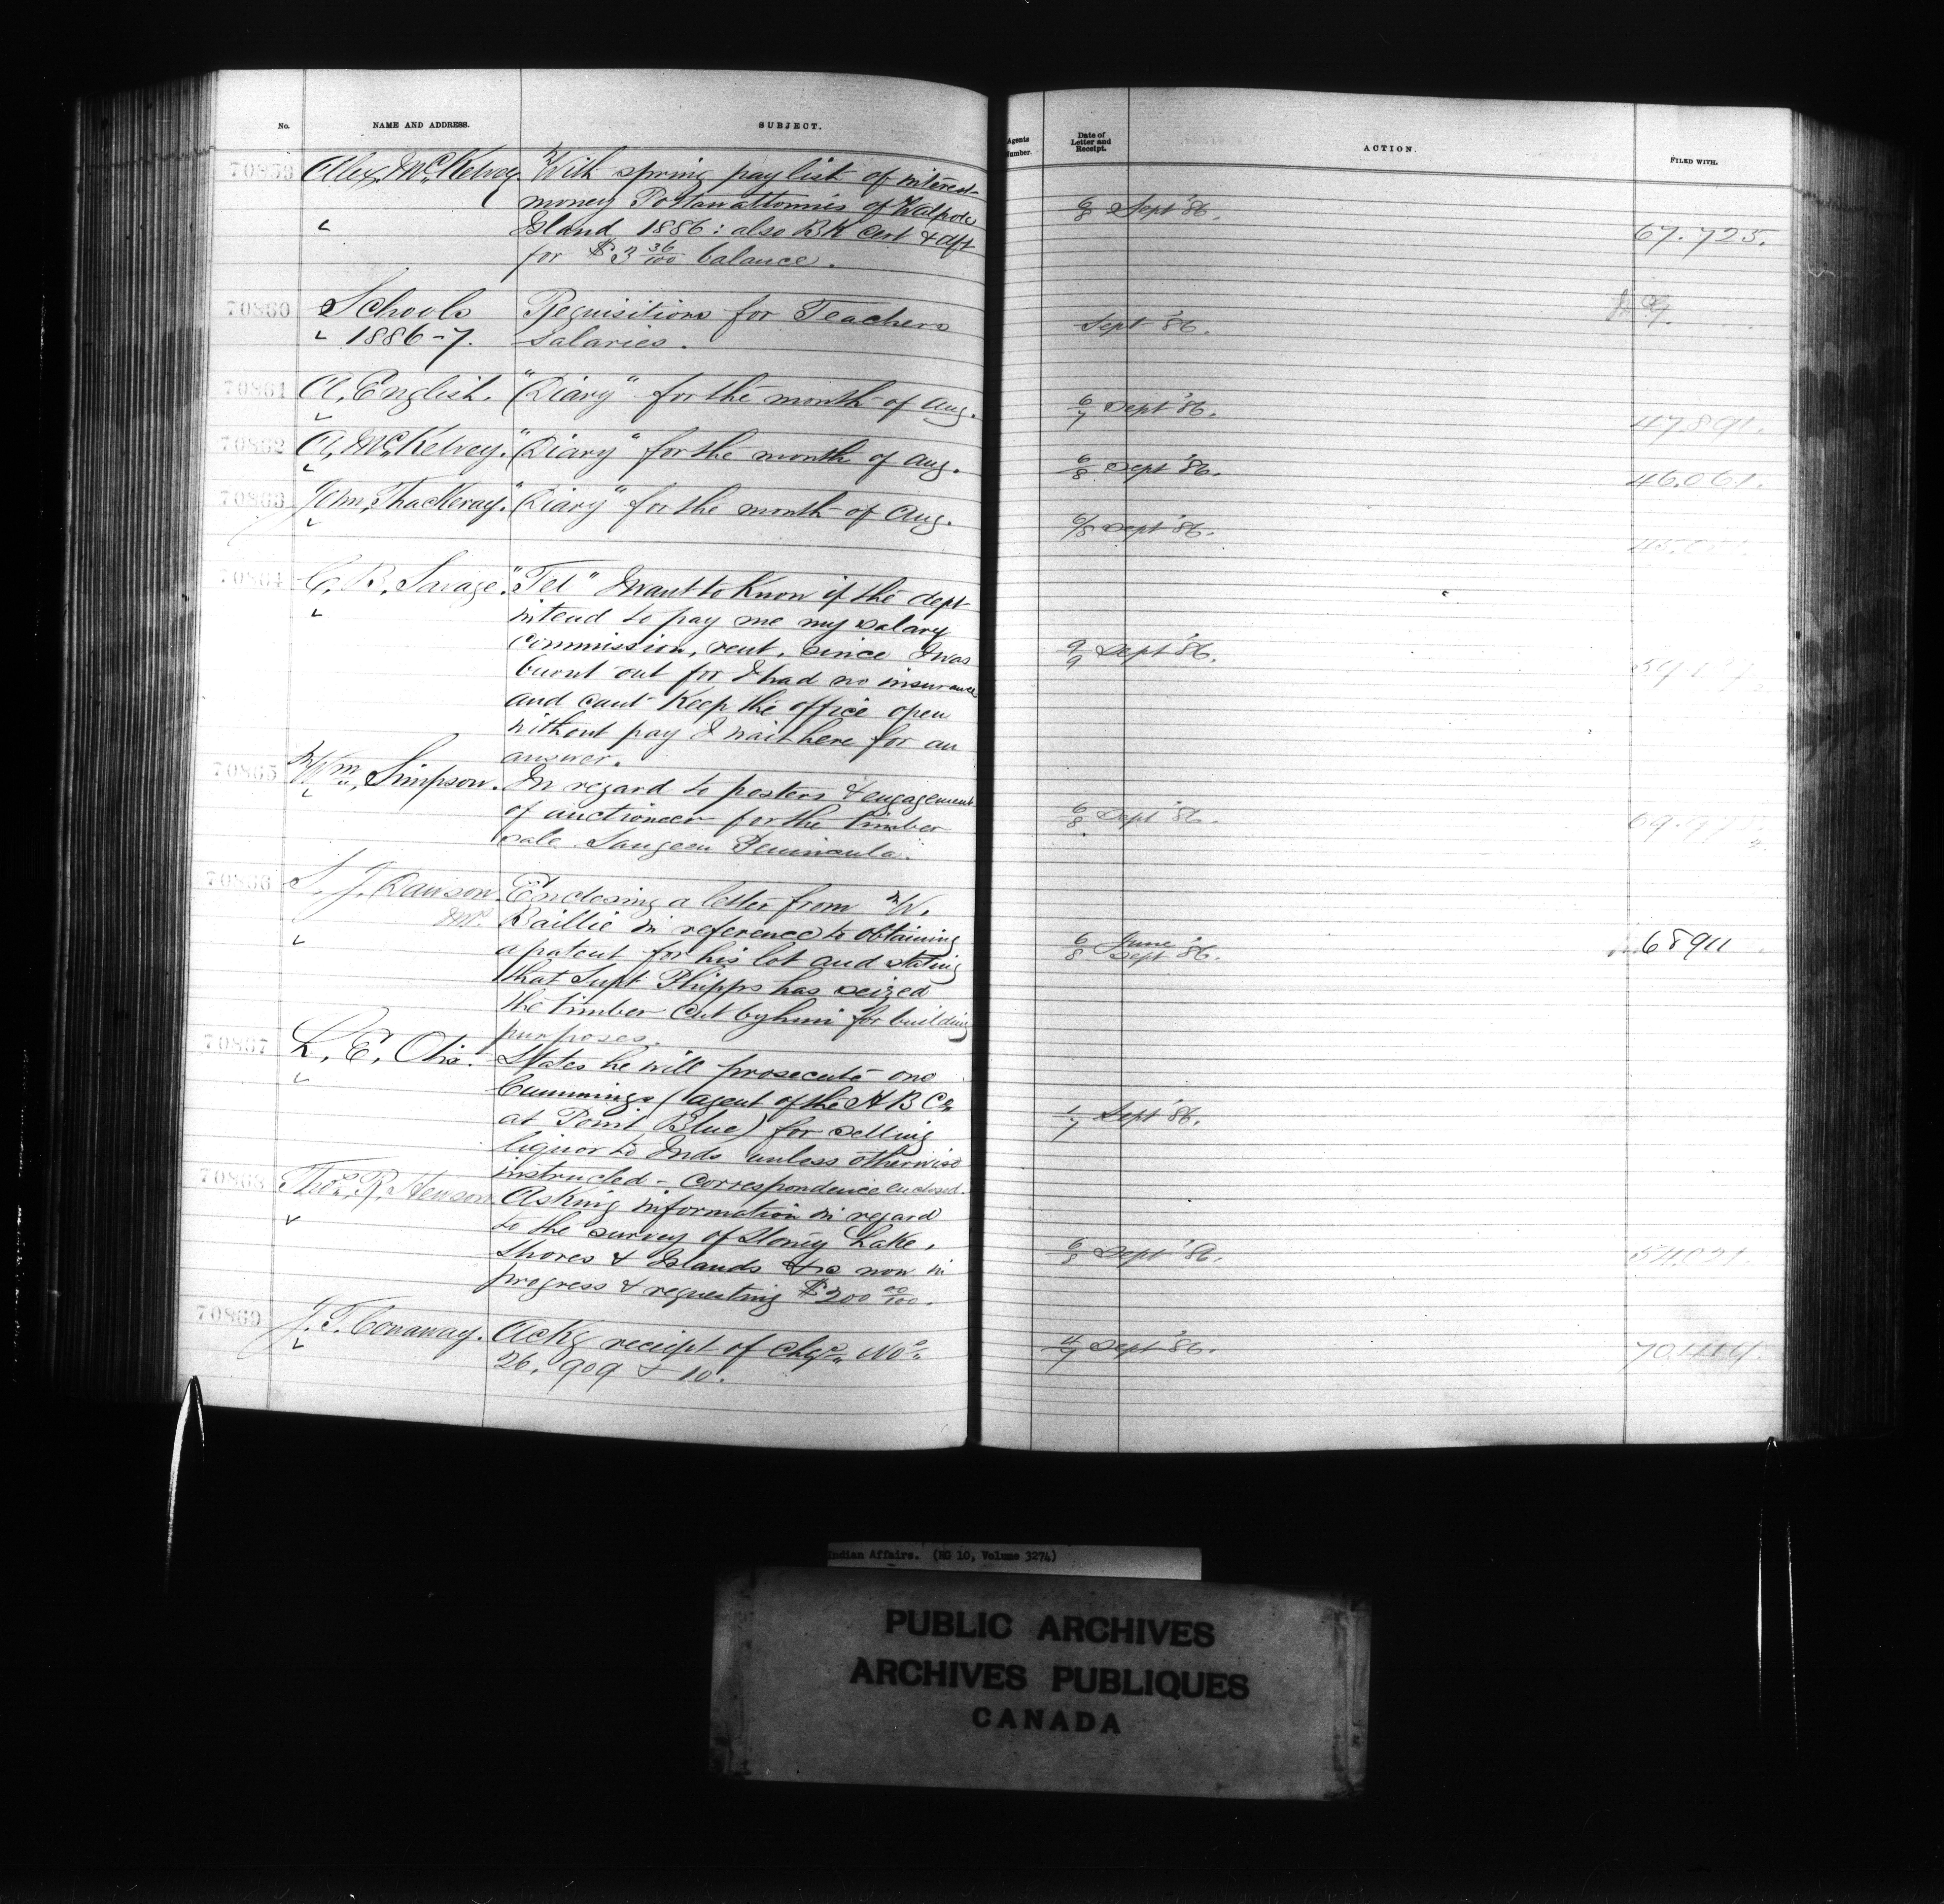 No. NAME AND ADDRESS. SUBJECT.
70859 Alex. McKelvey. With spring pay list of interest
money Pottawattomies of Walpole
Island 1886: also BK Cert & dft
for $3 36/100 balance.
70860 Schools Requisitions for Teachers
1886-7. Salaries.
70861 A. English. "Diary" for the month of Aug.
70862 A. McKelvey. "Diary" for the month of Aug.
70863 John Thackeray. "Diary" for the month of Aug.
70864 C. B. Savage. "Tel" I want to know if the dept
intend to pay me my salary
commission, rent, since I was
burnt out for I had no insurance
and cant keep the office open
without pay I wait here for an
answer.
70865 Wm. Simpson. In regard to posters & engagement
of auctioneer for the timber
sale Saugeen Peninsula.
70866 S. J. Dawson Enclosing a letter from W.
M.P. Baillie in reference to obtaining
a patent for his lot and stating
that Supt Phipps has seized
the timber cut by him for building
purposes.
70867 L. E. Otis. States he will prosecute one
Cummings (agent of the H B Co
at Point Blue) for selling
liquor to Inds unless otherwise
instructed - Correspondence enclosed.
70868 Thos. R. Hewson Asking information in regard
to the survey of Stoney Lake,
Shores & Islands now in
progress & requesting $200 00/100.
70869 J. T. Conaway. Ackg receipt of Chqs. Nos
26,909 & 10.
Agents Number. Date of Letter and Receipt. ACTION. FILED WITH.
6/8 Sept '86. 67.725.
Sept '86.
6/7 Sept '86. 47891.
6/8 Sept '86. 46.061.
6/8 Sept '86.
9/9 Sept '86.
6/8 Sept '86.
6/8 June Sept '86. 68911
1/7 Sept '86.
6/8 Sept '86.
4/7 Sept '86.
Indian Affairs. (RG 10, Volume 3274)
PUBLIC ARCHIVES
ARCHIVES PUBLIQUES
CANADA